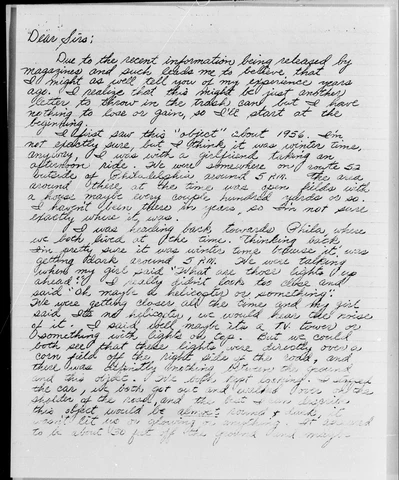 Dear Sirs;
Due to the recent information being released by
magazines and such leads me to believe that
I might as well tell you of my experience years
ago. I realize that this might be just another
letter to throw in the trash can, but I have
nothing to lose or gain, so I'll start at the
beginning.
I first saw this "object" about 1956. I'm
not exactly sure, but I think it was winter time,
anyway, I was with a girlfriend taking an
afternoon ride. We were somewhere on route 52
outside of Philadelphia around 5 P.M. The area
around there at the time was open fields with
a house maybe every couple hundred yards or so.
I haven't been there in years, so I'm not sure
exactly where it was.
I was heading back towards Phila. where
we both lived at the time. Thinking back
I'm pretty sure it was winter time 'cause it was
getting dark around 5 P.M. We were talking
when my girl said "What are those lights up
ahead?" I really didn't look too close and
said "Oh, maybe a helicopter or something".
We were getting closer all the time and my girl
said It's no helicopter, we would hear the noise
of it. I said well, maybe it's a T.V. tower or
something with lights on top. But we could
both see that these lights were directly over a
corn field off the right side of the road, and
there was definitly nothing between the ground
and this object. We both kept looking. I stopped
the car, we both got out and walked over to the
sholder of the road, and the best I can describe
this object would be almost round & dark, it
wasn't lit up or glowing or anything. It seemed
to be about 50 feet off the ground